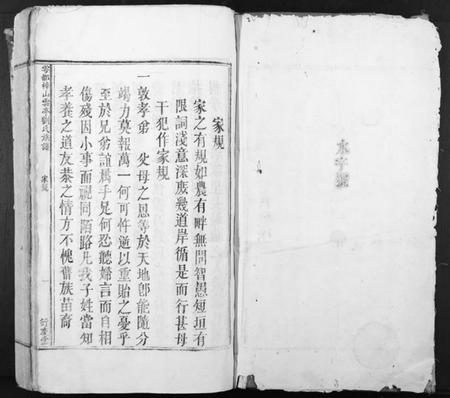 家規
家之有規如農有畔無間智愚短垣有
限詞淺意深庶幾道岸循是而行甚毋
干犯作家規
一敦孝弟 父母之恩等於天地卽能隨分
竭力莫報萬一何可忤逆以重貽之憂乎
至於兄弟誼屬手足何忍聽婦言而自相
傷殘因小事而視同陌路凡我子姓當知
孝養之道友恭之情方不愧舊族苗裔
雩都梓山雲亭劉氏族譜
家規
一